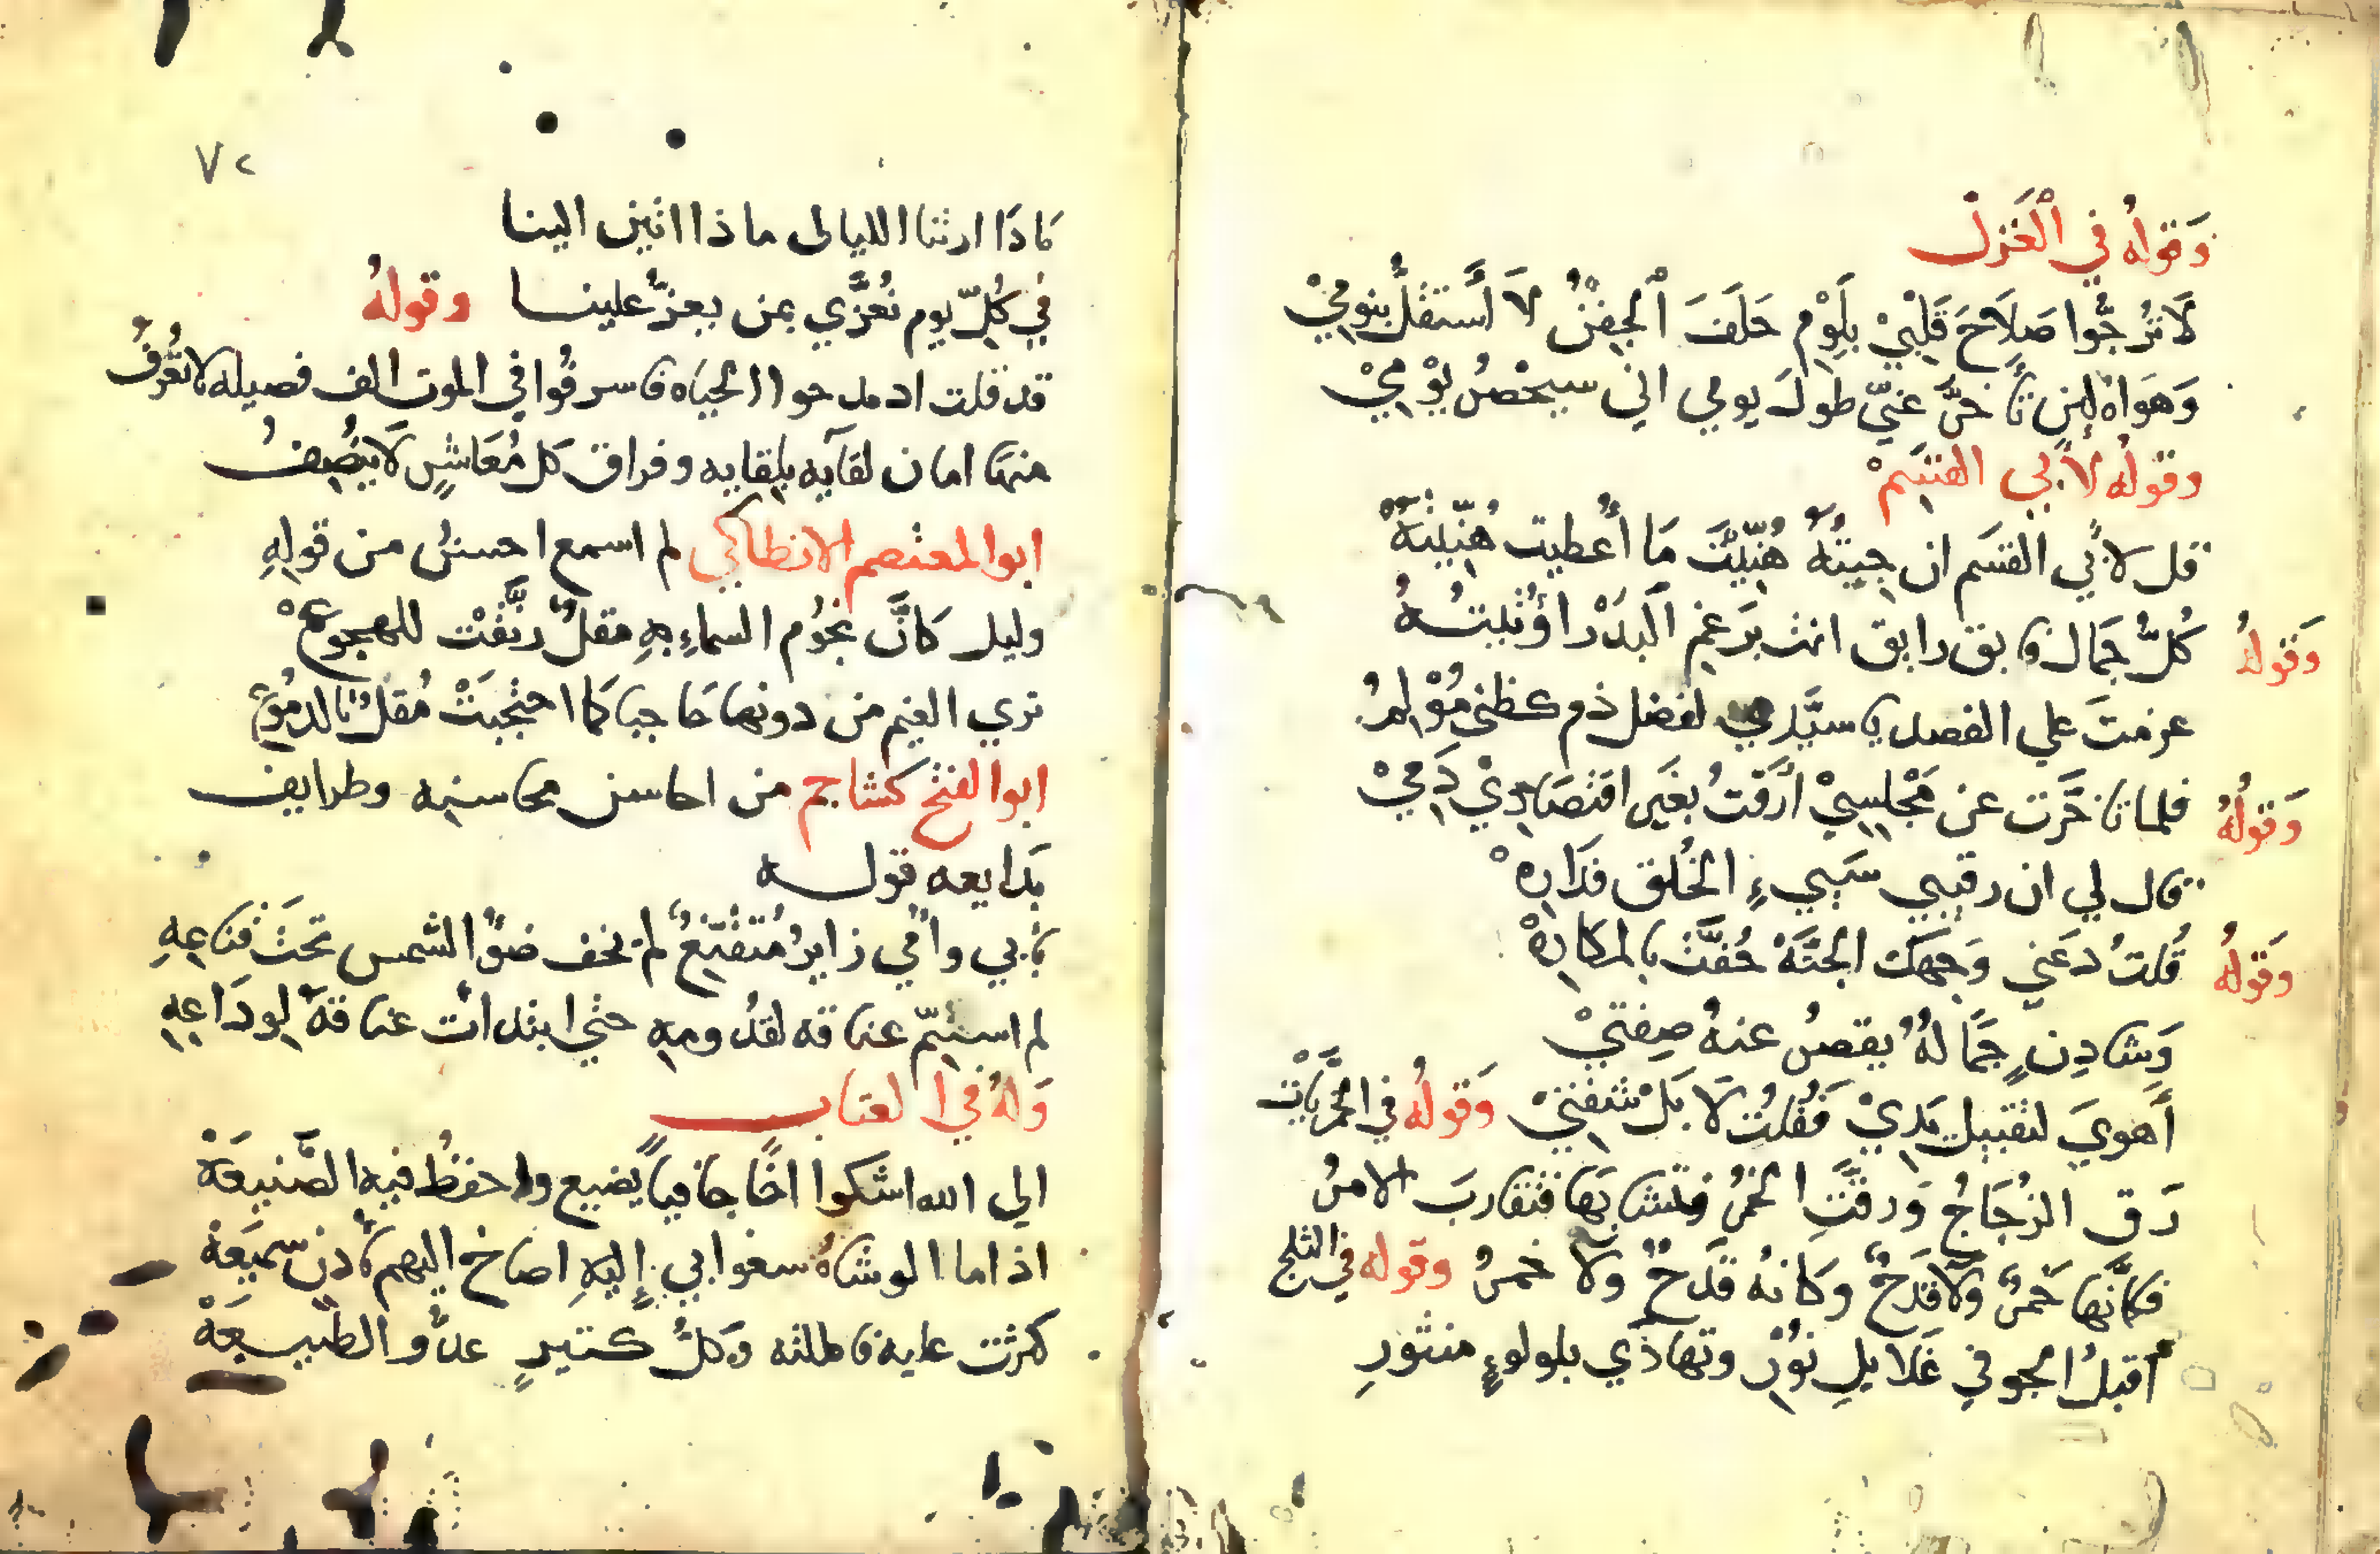 وَقولهُ في اْلغَزلْ
لَا تُرجُّوا صَلَاحَ قَلِبْيْ بِلَوْمٍ حَلَفَ اْلجِفْنُ لَا اَستقلُّ بنومِيْ
وَهَوَاهُ لِئن تأخَّرَ عنيّ طولَ يومي اني سيحْصُ يوْمِيْ
وقولُه لأَبي القسَمْ
قل لأَبي القسَم ان جِيتهُ هُنّيِتَ مَا أُعطيت هُنّيتهْ
كُلُّ جَمالٍ فايق رايق انت برَغمِ اَلبدْر أوْتيتُهُ
وَقولهُ
عزمتَ علي الفصد يا سيَّدي لفضل دم كظني مُوْلمُ
فلما تاخَّرت عن مَجْلِسِيْ أرَقتُ بغَير افتصَادِيْ دَمِيْ
وَقولُهُ
قال لي ان رقيبي سَيي ءٍ الخُلق فدَارِهْ
قُلتُ دَعَني وَجهَك الجَنَّهْ حُفَّت بالمكارِهْ
وَقولهُ
وَشادِنٍ جَمَالهُ يقصُ عنهُ صِفتيْ
أَهويَ لتقبيل يَدِيْ فَقُلتُ لَا بَلْ شفِتيْ وَقولُه في الخمَريَّاتْ
رَق الزُجَاجُ وَرقتِ الخمُ فتشابَها فتقاربَ الامرُ
فكانَّها خَمرٌ وَلاقدَحٌ وكانهُ قَدَحٌ ولا خمرُ وقوله في الثلج
أقبلُ الجو في غَلايلِ نوُرْ وتهادَي بلولوءٍ منثورِ
٧٢
ماذَا ارتنا الليالى ماذا اتين الينا
في كُلِّ يوم نُعَزَّي بمن يعزُّ علينا وقولهُ
قد قلت اد مدحوا الحياه فاسرفُوا في الموت الف فصيله لاتُعْرفُ
منها امان لقآيه بلِقايه وفراق كل مُعَاشرٍ لَا ينُصِفُ
ابوالمعتصم الانطاكي لم اسمع احسنُ من قولهِ
وليل كانَّ نجُوم السماءِ بهِ مقلُ رنَّقتْ للهجوعْ
تري الغيم من دونها حَاجبا كما احتجبَتْ مُقلٌ بالدمُوعْ
ابوالفتح كشاجم من احاسن محاسنه وطرايف
بَدايعه قوله
بابي وأُمي زايرُ مُتقنّعٌ لم يخف ضوُ الشمس تحَتَ قنَاعِهِ
لم استتمّ عناقه لقدُومهِ حتي ابتدأت عناقهَ لِودَاعِهِ
وَلهُ في العتاب
الي الله اشكوا اخًا جافياً يضيع واحفظُ فيه الصَّنيعَهْ
اذا ما الوشاهُ سعوابي إليهِ اصاخ اليهم بأدن سميَعهْ
كثرت عليه فاملته وَكلُ كتيرٍ عدُّو الطّبيعَهْ